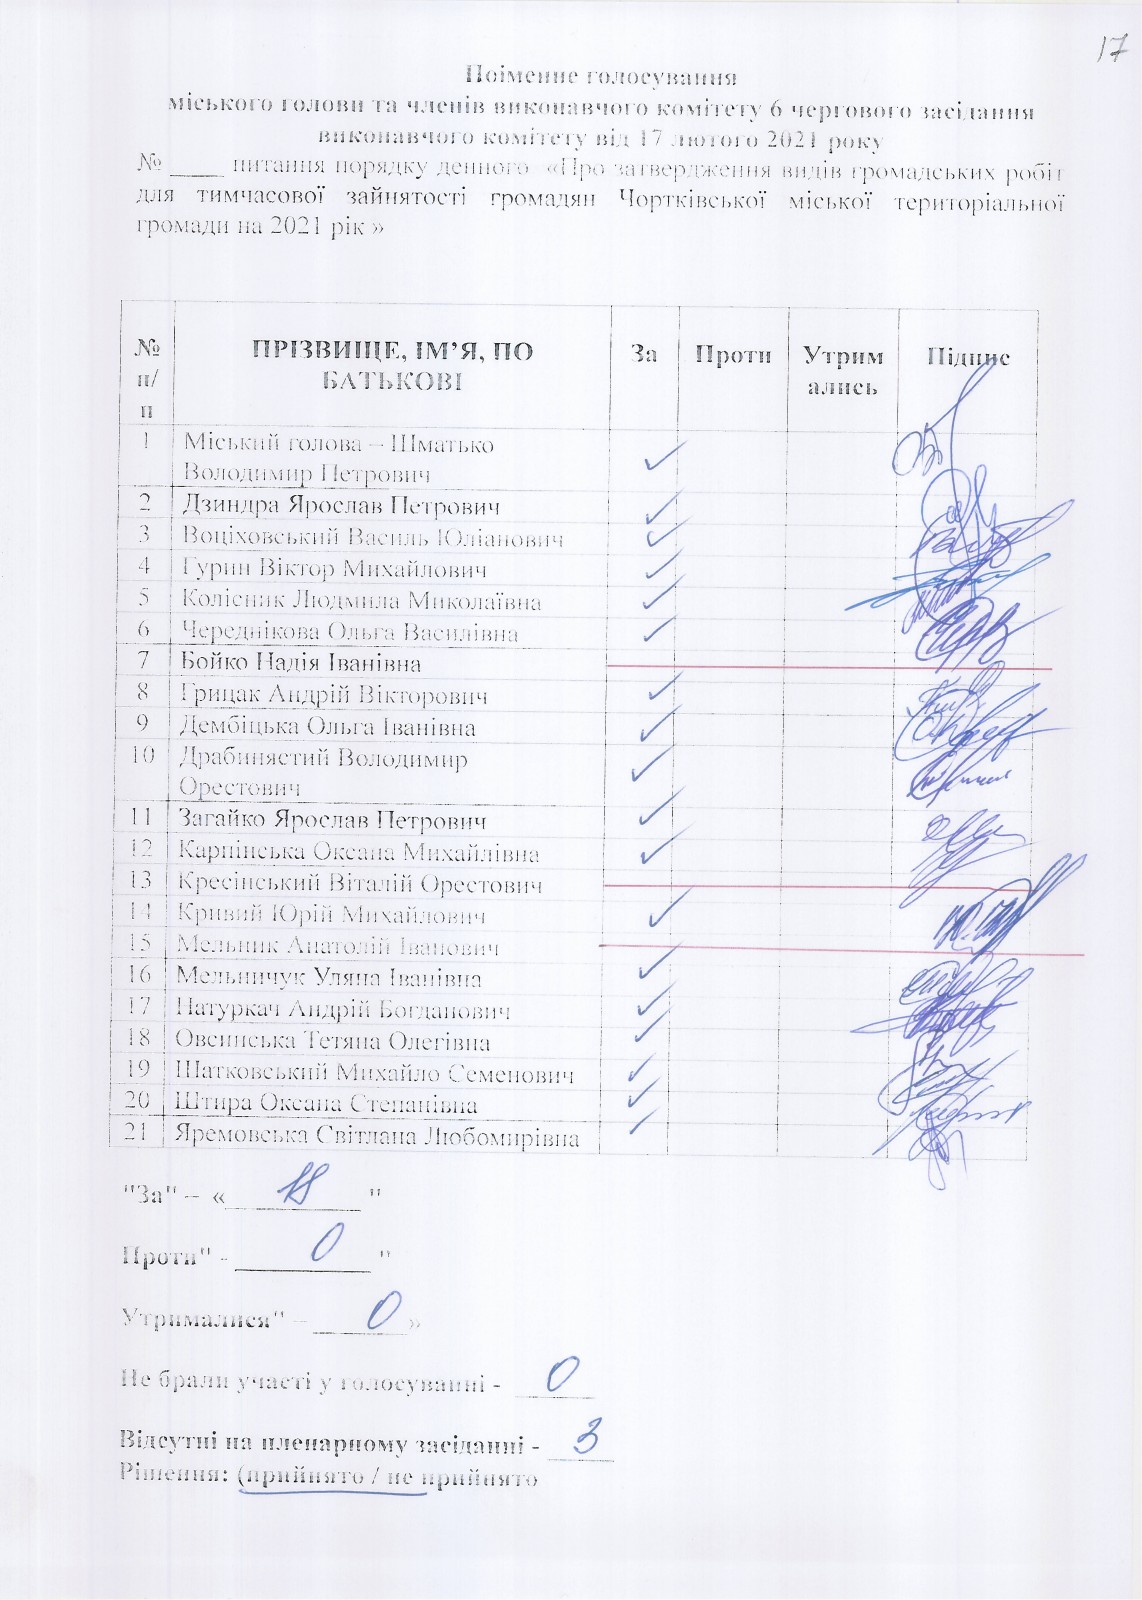 17
Поіменне голосування
міського голови та членів виконавчого комітету 6 чергового засідання
виконавчого комітету від 17 лютого 2021 року
№ ____ питання порядку денного «Про затвердження видів громадських робіт
для тимчасової зайнятості громадян Чортківської міської територіальної
громади на 2021 рік »
№ п/п ПРІЗВИЩЕ, ІМ’Я, ПО БАТЬКОВІ За Проти Утримались Підпис
1 Міський голова – Шматько
Володимир Петрович
2 Дзиндра Ярослав Петрович
3 Воціховський Василь Юліанович
4 Гурин Віктор Михайлович
5 Колісник Людмила Миколаївна
6 Череднікова Ольга Василівна
7 Бойко Надія Іванівна
8 Грицак Андрій Вікторович
9 Дембіцька Ольга Іванівна
10 Драбинястий Володимир
Орестович
11 Загайко Ярослав Петрович
12 Карпінська Оксана Михайлівна
13 Кресінський Віталій Орестович
14 Кривий Юрій Михайлович
15 Мельник Анатолій Іванович
16 Мельничук Уляна Іванівна
17 Натуркач Андрій Богданович
18 Овсинська Тетяна Олегівна
19 Шатковський Михайло Семенович
20 Штира Оксана Степанівна
21 Яремовська Світлана Любомирівна
"За" – « 18 "
Проти" - 0 "
Утрималися" – 0 »
Не брали участі у голосуванні - 0
Відсутні на пленарному засіданні - 3
Рішення: (прийнято / не прийнято